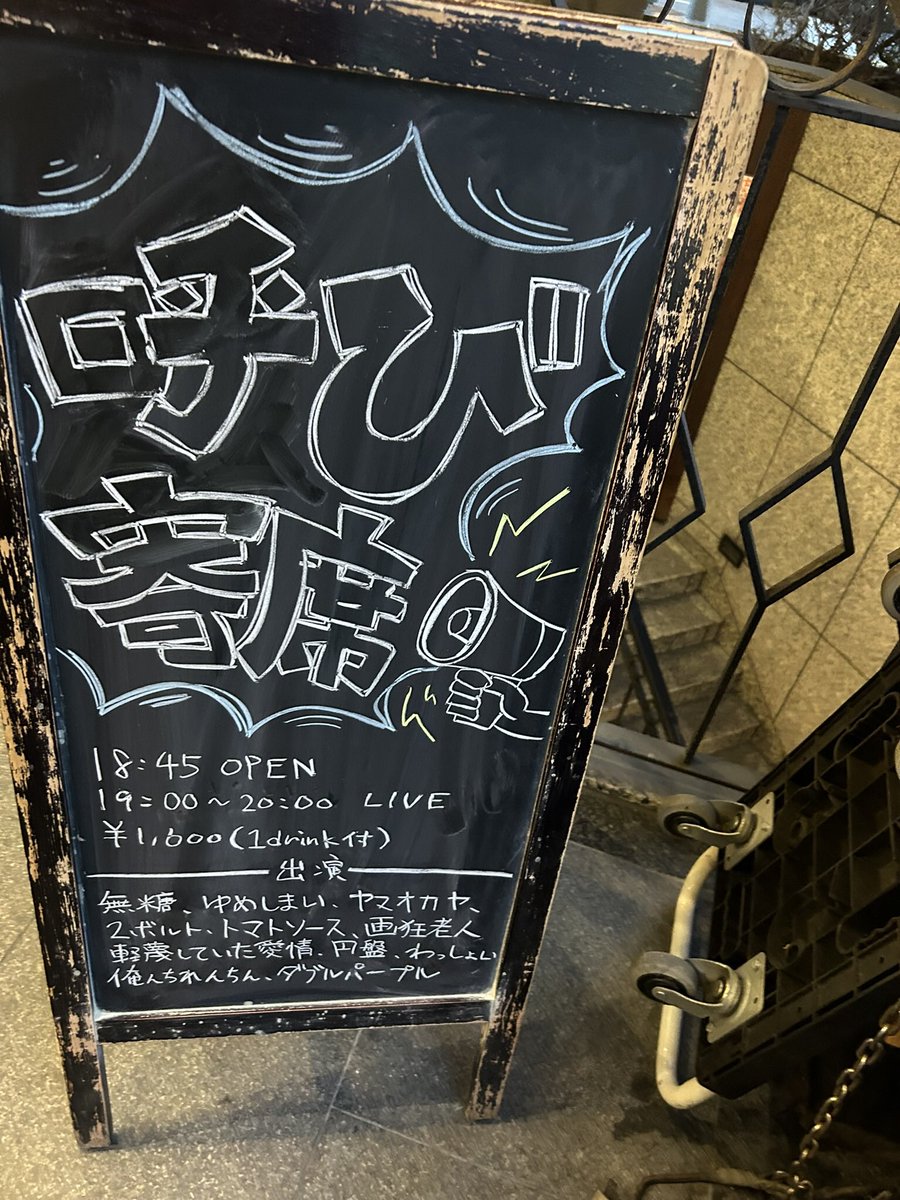 呼び
寄席
18:45 OPEN
19:00～20:00 LIVE
¥1,600(1drink付)
出演
無糖、ゆめしまい、ヤマオカヤ、
2ボルト、トマトソース、画狂老人
軽蔑していた愛情、円盤、わっしょい
俺んちれんちん、ダブルパープル